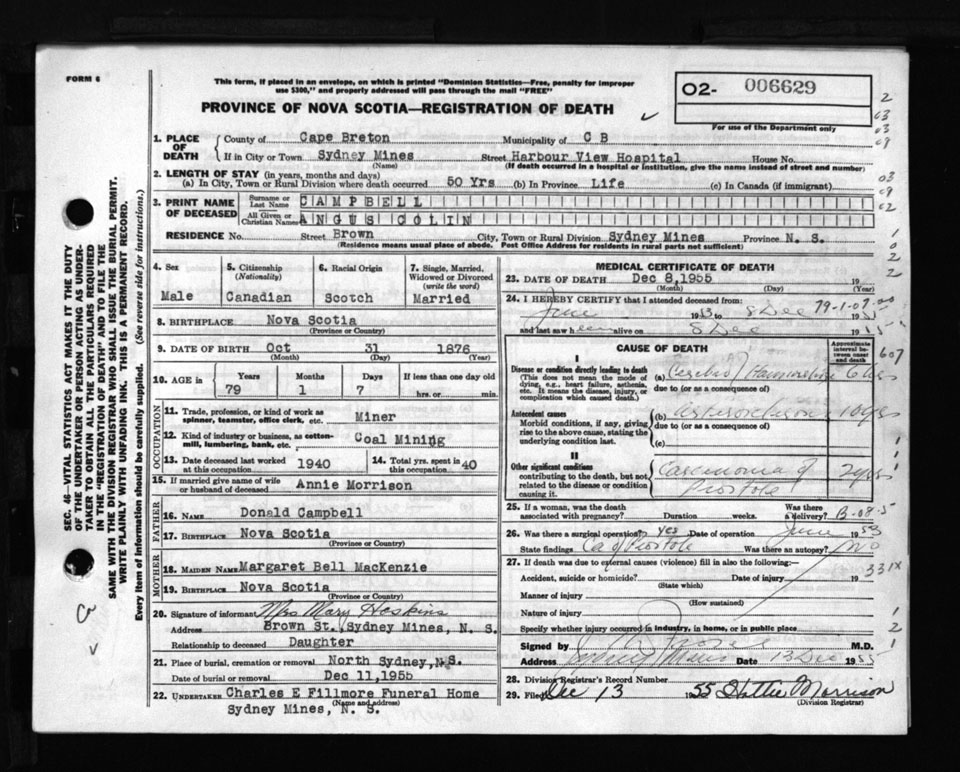 FORM 6
This form, if placed in an envelope, on which is printed "Dominion Statistics—Free, penalty for improper
use $300," and properly addressed will pass through the mail "FREE"
PROVINCE OF NOVA SCOTIA—REGISTRATION OF DEATH
02- 006629
For use of the Department only
1. PLACE OF DEATH County of Cape Breton Municipality of C B
If in City or Town Sydney Mines Street Harbour View Hospital House No.
(Name) (If death occurred in a hospital or institution, give the name instead of street and number)
2. LENGTH OF STAY (in years, months and days)
(a) In City, Town or Rural Division where death occurred 50 Yrs (b) In Province Life (c) In Canada (if immigrant)
3. PRINT NAME OF DECEASED Surname or Last Name CAMPBELL
All Given or Christian Names ANGUS COLIN
RESIDENCE No. Street Brown City, Town or Rural Division Sydney Mines Province N. S.
(Residence means usual place of abode. Post Office Address for residents in rural parts not sufficient)
4. Sex Male
5. Citizenship (Nationality) Canadian
6. Racial Origin Scotch
7. Single, Married, Widowed or Divorced (write the word) Married
8. BIRTHPLACE Nova Scotia
(Province or Country)
9. DATE OF BIRTH Oct 31 1876
(Month) (Day) (Year)
10. AGE in Years 79 Months 1 Days 7 If less than one day hrs. or min.
OCCUPATION
11. Trade, profession, or kind of work as spinner, teamster, office clerk, etc. Miner
12. Kind of industry or business, as cotton-mill, lumbering, bank, etc. Coal Mining
13. Date deceased last worked at this occupation 1940 14. Total yrs. spent in this occupation 40
15. If married give name of wife or husband of deceased Annie Morrison
FATHER
16. NAME Donald Campbell
17. BIRTHPLACE Nova Scotia
(Province or Country)
MOTHER
18. MAIDEN NAME Margaret Bell MacKenzie
19. BIRTHPLACE Nova Scotia
(Province or Country)
20. Signature of informant Mrs Mary Hoskins
Address Brown St. Sydney Mines, N. S.
Relationship to deceased Daughter
21. Place of burial, cremation or removal North Sydney, N.S.
Date of burial or removal Dec 11, 1955
22. UNDERTAKER Charles E Fillmore Funeral Home
(Name and address)
Sydney Mines, N. S.
MEDICAL CERTIFICATE OF DEATH
23. DATE OF DEATH Dec 8, 1955 19
(Month) (Day) (Year)
24. I HEREBY CERTIFY that I attended deceased from:
June 1953 to 8 Dec 1955
79-1-07
and last saw h alive on 8 Dec 1955
CAUSE OF DEATH
Approximate interval between onset and death
I
Disease or condition directly leading to death
(This does not mean the mode of dying, e.g., heart failure, asthenia, etc. It means the disease, injury, or complication which caused death.)
(a) Cerebral
due to (or as a consequence of)
Antecedent causes
Morbid conditions, if any, giving rise to the above cause, stating the underlying condition last.
(b) 10 yrs
due to (or as a consequence of)
(c)
II
Other significant conditions
contributing to the death, but not related to the disease or condition causing it.
Carcinoma of Prostate 2 yrs
25. If a woman, was the death associated with pregnancy? Duration weeks. Was there a delivery?
26. Was there a surgical operation? yes Date of operation June 1953
State findings Ca of Prostate Was there an autopsy? no
27. If death was due to external causes (violence) fill in also the following:
Accident, suicide or homicide? Date of injury 19
(State which)
331X
Manner of injury
(How sustained)
Nature of injury
Specify whether injury occurred in industry, in home, or in public place
Signed by M.D.
Address Sydney Mines Date 13 Dec 1955
28. Division Registrar's Record Number
29. Filed Dec 13 1955 Hattie Morrison
(Division Registrar)
SEC. 46—VITAL STATISTICS ACT MAKES IT THE DUTY
OF THE UNDERTAKER OR PERSON ACTING AS UNDER-
TAKER TO OBTAIN ALL THE PARTICULARS REQUIRED
IN THE "REGISTRATION OF DEATH" AND TO FILE THE
SAME WITH THE DIVISION REGISTRAR WHO SHALL ISSUE THE BURIAL PERMIT.
WRITE PLAINLY WITH UNFADING INK. THIS IS A PERMANENT RECORD.
Every item of information should be carefully supplied. (See reverse side for instructions.)